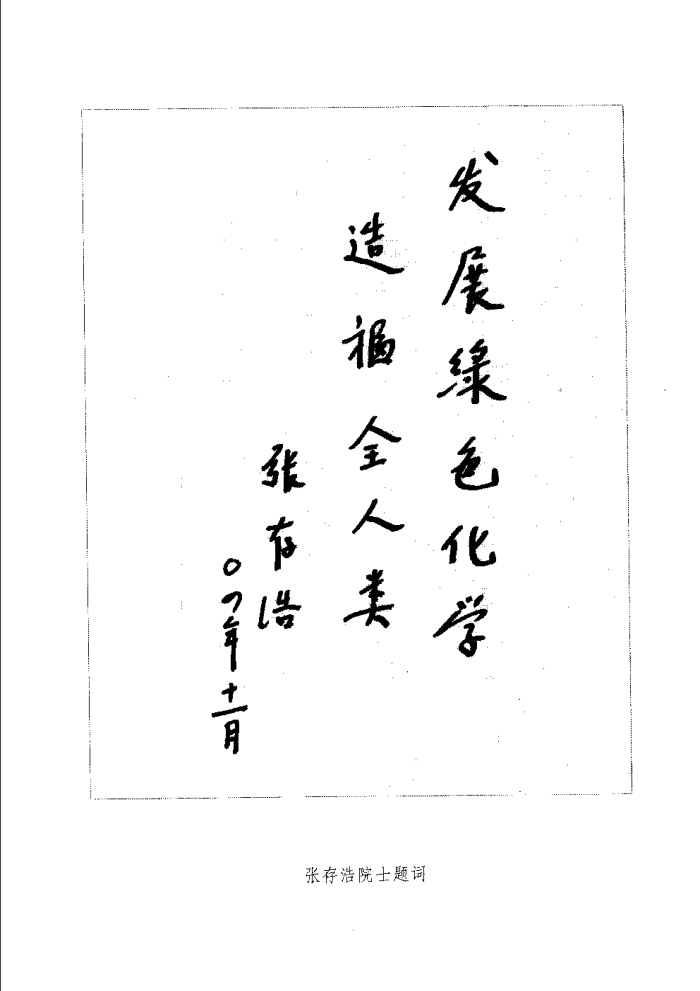 发展綠色化学
造福全人类
张存浩
〇四年十一月
张存浩院士题词